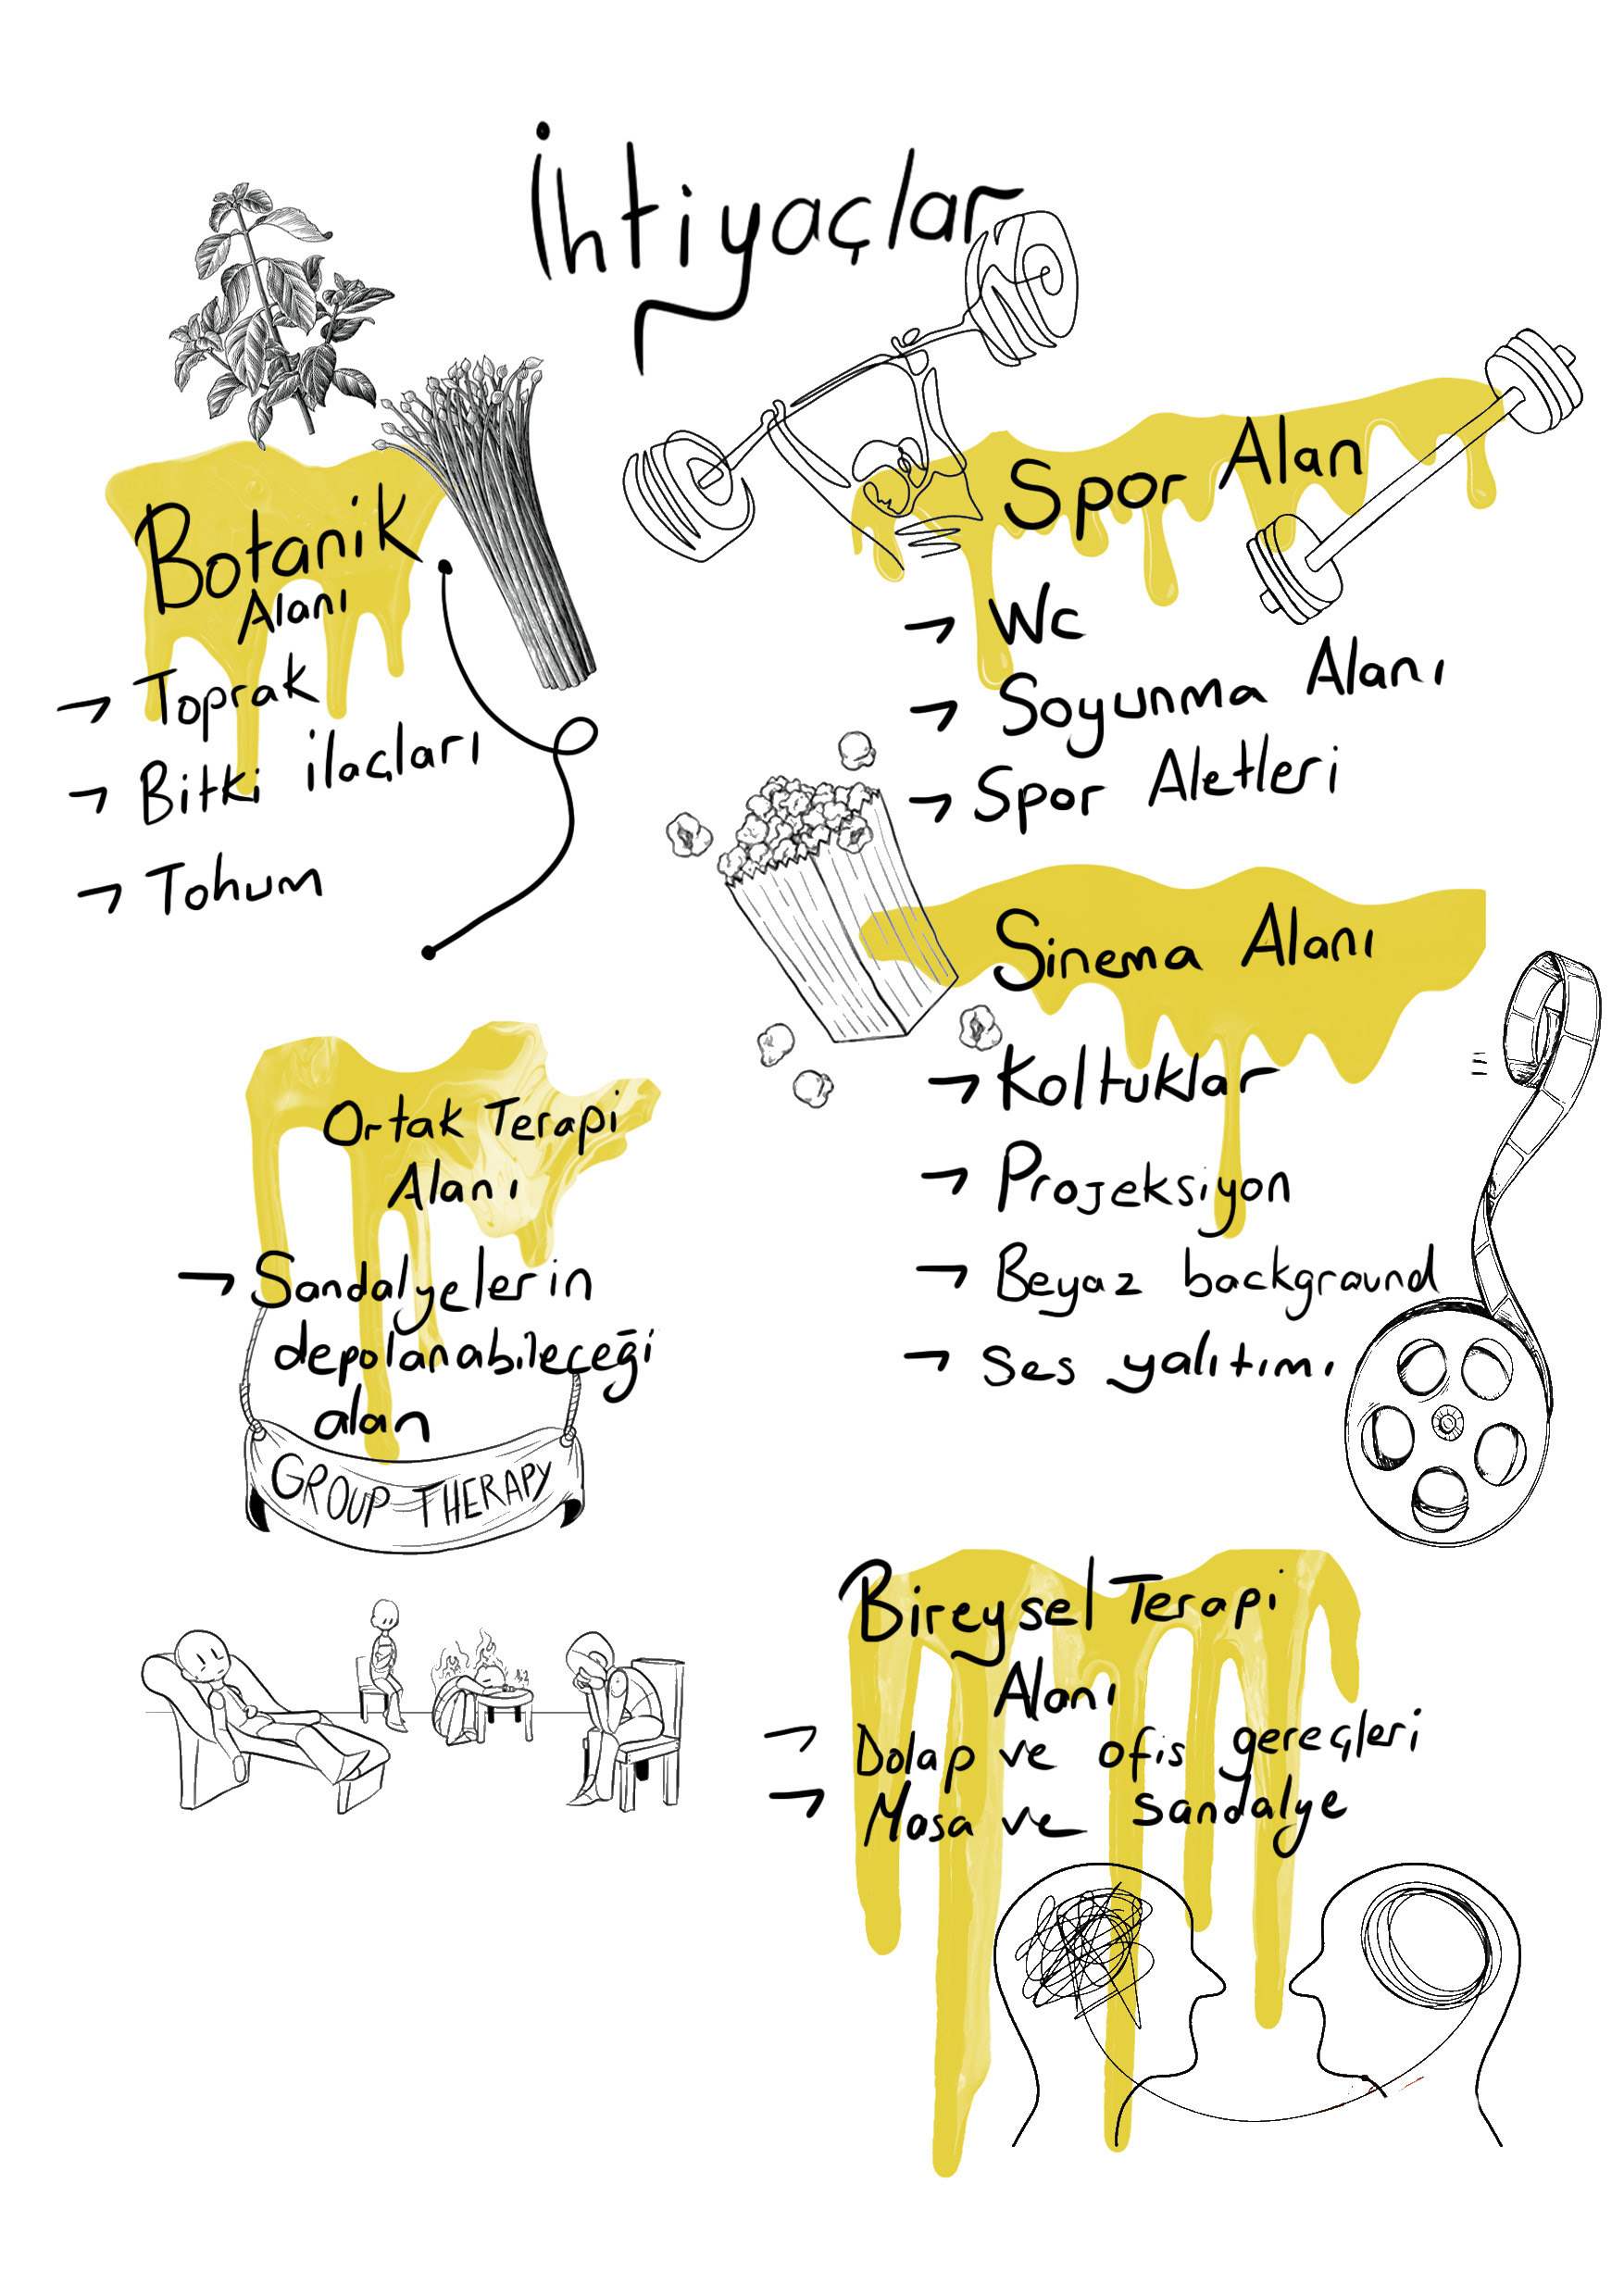 İhtiyaçlar
Botanik
Alanı
→ Toprak
→ Bitki ilaçları
→ Tohum
Spor Alan
→ Wc
→ Soyunma Alanı
→ Spor Aletleri
Sinema Alanı
→ Koltuklar
→ Projeksiyon
→ Beyaz background
→ Ses yalıtımı
Ortak Terapi
Alanı
→ Sandalyelerin
depolanabileceği
alan
GROUP THERAPY
Bireysel Terapi
Alanı
→ Dolap ve ofis gereçleri
→ Masa ve sandalye